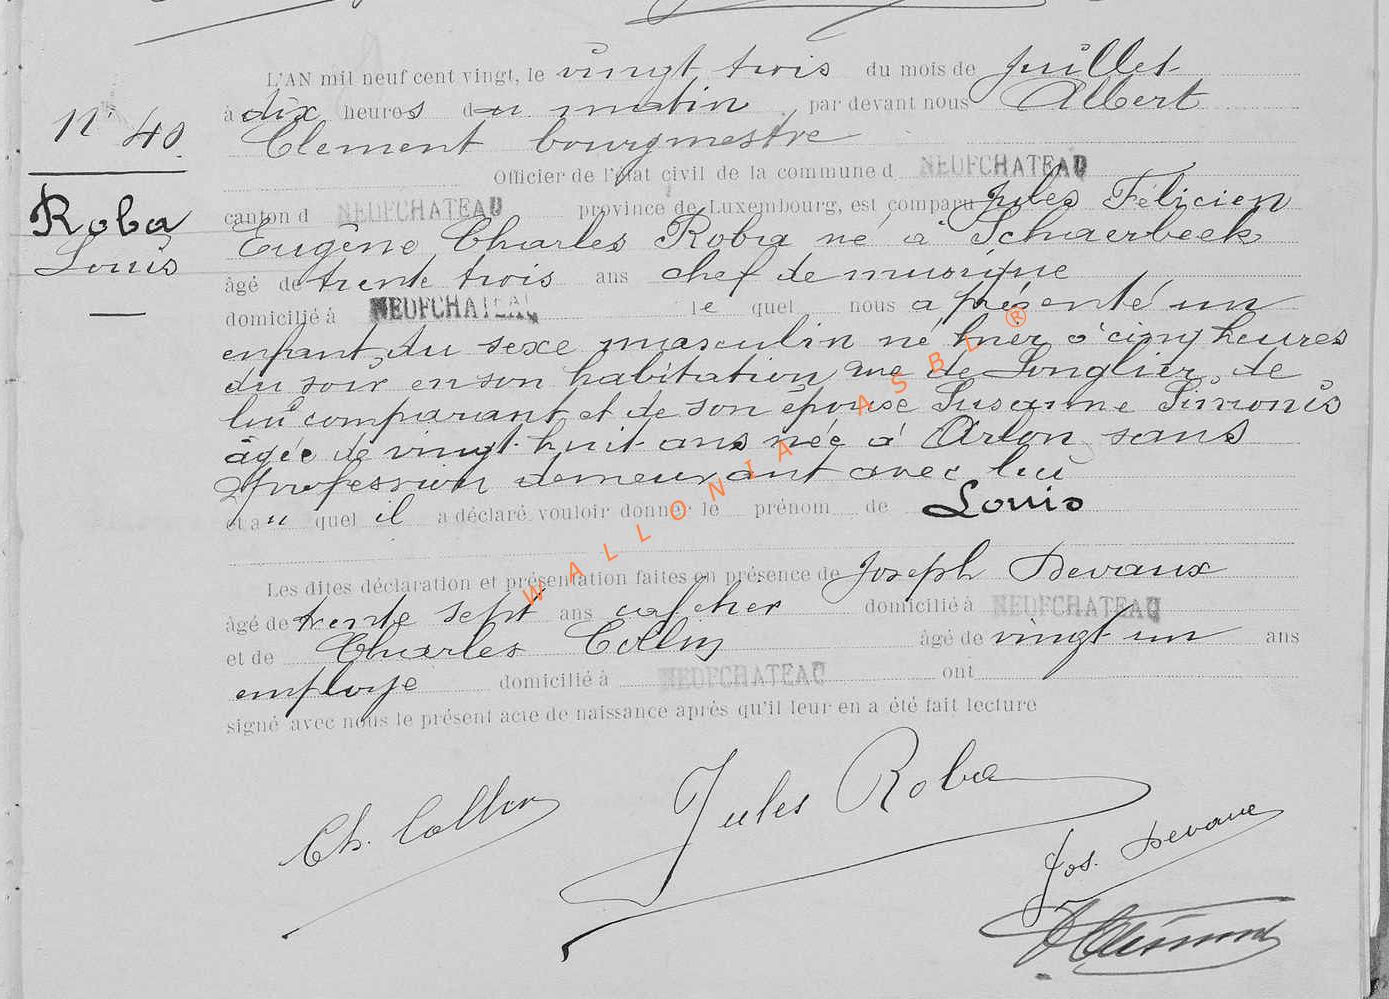 N° 40
Roba
Louis
L'AN mil neuf cent vingt, le vingt trois du mois de juillet
à dix heures du matin, par devant nous Albert
Clement bourgmestre
Officier de l'état civil de la commune d NEUFCHATEAU
canton d NEUFCHATEAU province de Luxembourg, est comparu Jules Félicien
Eugène Charles Roba né à Schaerbeek
âgé de trente trois ans chef de musique
domicilié à NEUFCHATEAU le quel nous a présenté un
enfant du sexe masculin né hier à cinq heures
du soir en son habitation rue de Longlier, de
lui comparant et de son épouse Susanne Simonis
âgée de vingt huit ans née à Arlon, sans
profession demeurant avec lui
et au quel il a déclaré vouloir donner le prénom de Louis
Les dites déclaration et présentation faites en présence de Joseph Devaux
âgé de trente sept ans domicilié à NEUFCHATEAU
et de Charles Collin âgé de vingt un ans
employé domicilié à NEUFCHATEAU ont
signé avec nous le présent acte de naissance après qu'il leur en a été fait lecture
Ch. Collin
Jules Roba
Jos. Devaux
WALLONIA ASBL ®